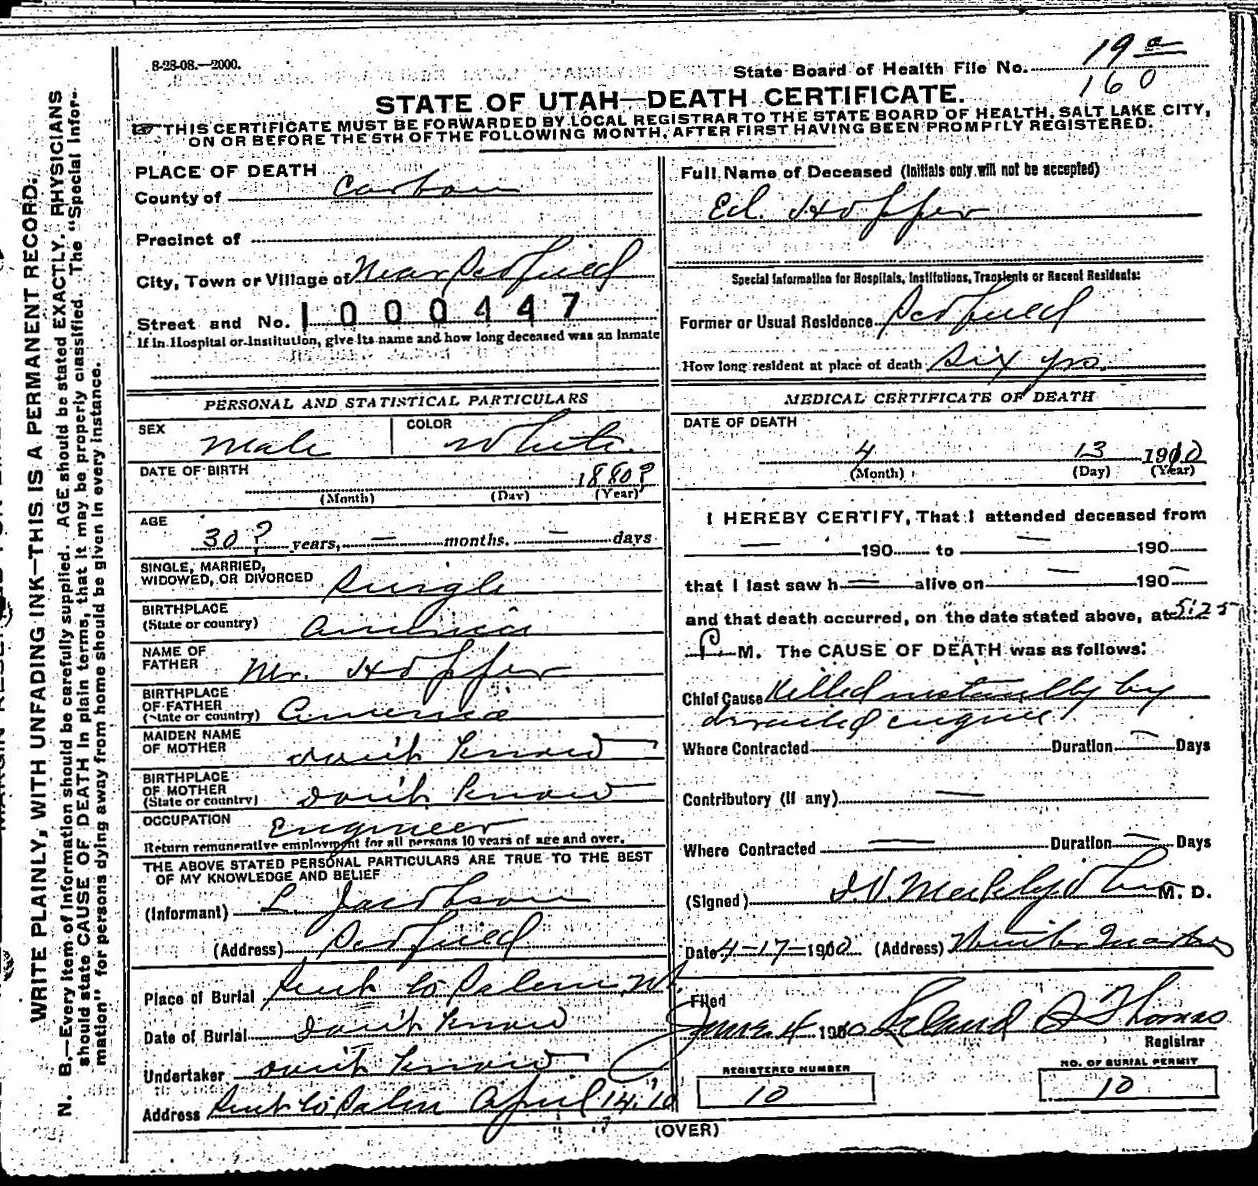 8-28-08.—2000.
State Board of Health File No. 19
160
STATE OF UTAH—DEATH CERTIFICATE.
THIS CERTIFICATE MUST BE FORWARDED BY LOCAL REGISTRAR TO THE STATE BOARD OF HEALTH, SALT LAKE CITY,
ON OR BEFORE THE 5TH OF THE FOLLOWING MONTH, AFTER FIRST HAVING BEEN PROMPTLY REGISTERED.
WRITE PLAINLY, WITH UNFADING INK—THIS IS A PERMANENT RECORD.
N. B.—Every item of Information should be carefully supplied. AGE should be stated EXACTLY. PHYSICIANS
should state CAUSE OF DEATH in plain terms, that it may be properly classified. The "Special Infor-
mation" for persons dying away from home should be given in every instance.
PLACE OF DEATH
County of Carbon
Precinct of
City, Town or Village of Near
Street and No. 1000447
If in Hospital or Institution, give its name and how long deceased was an Inmate
PERSONAL AND STATISTICAL PARTICULARS
SEX Male COLOR White
DATE OF BIRTH 1880?
(Month) (Day) (Year)
AGE
30? years, — months. — days
SINGLE, MARRIED,
WIDOWED, OR DIVORCED Single
BIRTHPLACE
(State or country) America
NAME OF
FATHER Mr. Hopper
BIRTHPLACE
OF FATHER
(State or country) America
MAIDEN NAME
OF MOTHER don't know
BIRTHPLACE
OF MOTHER
(State or country) don't know
OCCUPATION Engineer
Return remunerative employment for all persons 10 years of age and over.
THE ABOVE STATED PERSONAL PARTICULARS ARE TRUE TO THE BEST
OF MY KNOWLEDGE AND BELIEF
(Informant) L. Jacobson
(Address)
Place of Burial Sent to Salem
Date of Burial don't know
Undertaker don't know
Address Sent to Salem April 14, '10
Full Name of Deceased (Initials only will not be accepted)
Ed. Hopper
Special Information for Hospitals, Institutions, Transients or Recent Residents:
Former or Usual Residence
How long resident at place of death Six yrs.
MEDICAL CERTIFICATE OF DEATH
DATE OF DEATH
4 13 1910
(Month) (Day) (Year)
I HEREBY CERTIFY, That I attended deceased from
— 190 to — 190
that I last saw h — alive on — 190
and that death occurred, on the date stated above, at 5:25
P M. The CAUSE OF DEATH was as follows:
Chief Cause Killed instantly by
derailed engine
Where Contracted Duration — Days
Contributory (if any) —
Where Contracted — Duration — Days
(Signed) M. D.
Date 4-17-1910 (Address) Winter Quarters
Filed
June 4 1910 Leland Thomas
Registrar
REGISTERED NUMBER
10
NO. OF BURIAL PERMIT
10
(OVER)